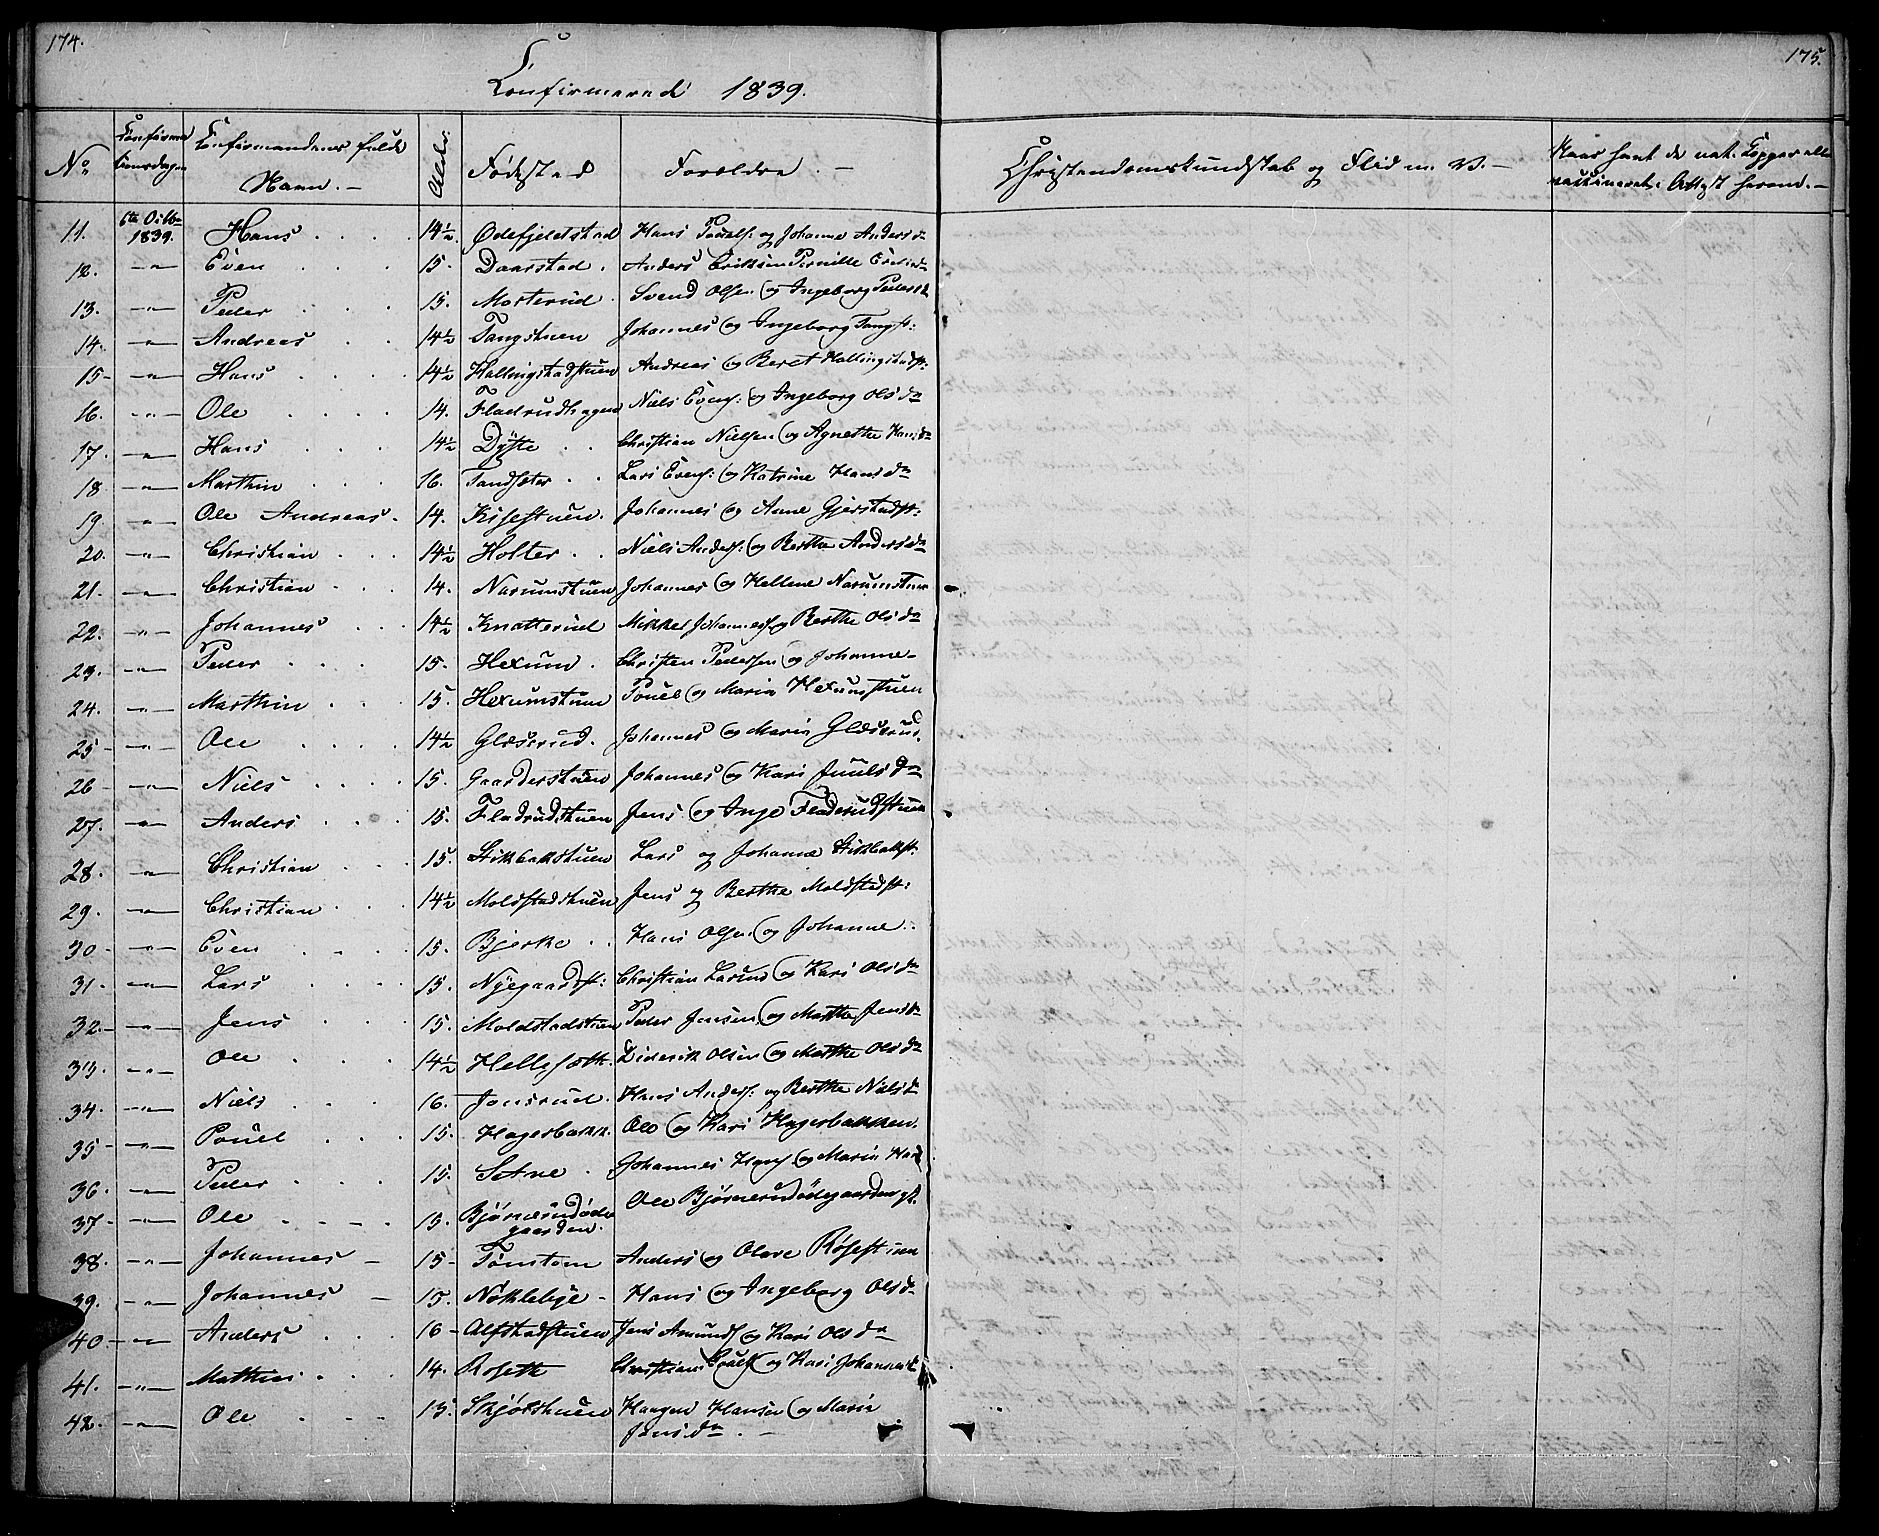 174.
175.
Confirmerede 1839.
No
Confirma
tionsdagen
Confirmandenes fulde
Navn. -
Alder.
Fødested
Forældre. -
Christendomskundskab og Flid m. V. -
Naar havt de nat. Kopper eller
vaccineret. Attest herom. -
11. 6te Octbr 1839. Hans 14½. Ødefjeldstad Hans Povels: og Johanne Andersdr
12. -"- Even 15. Daarstad. Anders Eriksen Pernille Evensdr
13. -"- Peder 15. Morterud. Svend Olsen og Ingeborg Pedersd
14. -"- Andreas 14½ Tangstuen Johannes og Ingeborg Tangst:
15- -"- Hans 14½ Hallingstadstuen Andreas og Beret Hallingstadst:
16. -"- Ole 14. Fladrudhagen Niels Evens: og Ingeborg Olsdr
17. -"- Hans 14½ Dyste Christian Nielsen og Agnethe Hansdr
18 -"- Marthin 16. Tandsæter Lars Evens: og Katrine Hansdr
19 -"- Ole Andreas. 14. Kisestuen. Johannes og Anne Gjerstadst:
20. -"- Christian 14½ Holter Niels Anders: og Berthe Andersdr
21. -"- Christian 14. Narumstuen Johannes og Hellene Narumstuen
22. -"- Johannes 14½ Knatterud Mikkel Johannes og Berthe Olsdr
23. -"- Peder 15. Hexum. Christen Pedersen og Johanne-
24. -"- Marthin 15. Hexumstuen Pouel og Maria Hexumstuen
25- -"- Ole 14½ Glæserud. Johannes og Marie Glæserud.
26- -"- Niels 15. Gaarderstuen Johannes og Kari Juulsdr
27. -"- Anders 15. Fladrudstuen Jens og Inge Fladrudstuen
28. -"- Christian 15. Stikbakstuen Lars og Johanne Stikbakst:
29. -"- Christian 14½ Moldstadstuen Jens og Berthe Moldstadst:
30- -"- Even 15. Bjerke Hans Olsen og Johanne
31- -"- Lars 15. Nygaardst: Christian Larsen og Kari Olsdr
32.- -"- Jens 15. Moldstadstuen Peder Jensen og Marthe Jensdr
33. -"- Ole 14½ Hellesæth. Diderik Olsen og Marthe Olsdr
34. -"- Niels 16. Jonsrud. Hans Anders: og Berthe Nielsdr
35- -"- Pouel 15. Hagerbakk. Ole og Kari Hagerbakken
36. -"- Peder 15. Setne Johannes Hans og Marie Hans
37- -"- Ole 15. Bjørnerudøde
gaarden. Ole Bjørnerudødegaarden
38. -"- Johannes 15- Tømtom Anders og Olave Røsestuen
39. -"- Johannes 15. Nøklebye - Hans og Ingeborg Olsd
40- -"- Anders 16- Alfstadstuen Jens Amunds og Kari Olsdr
41. -"- Mathias 14. Roseth Christian Pouels og Kari Johannesd
42. -"- Ole 15. Skjølstuen Haagen Hansen og Marie
Jensdr. -